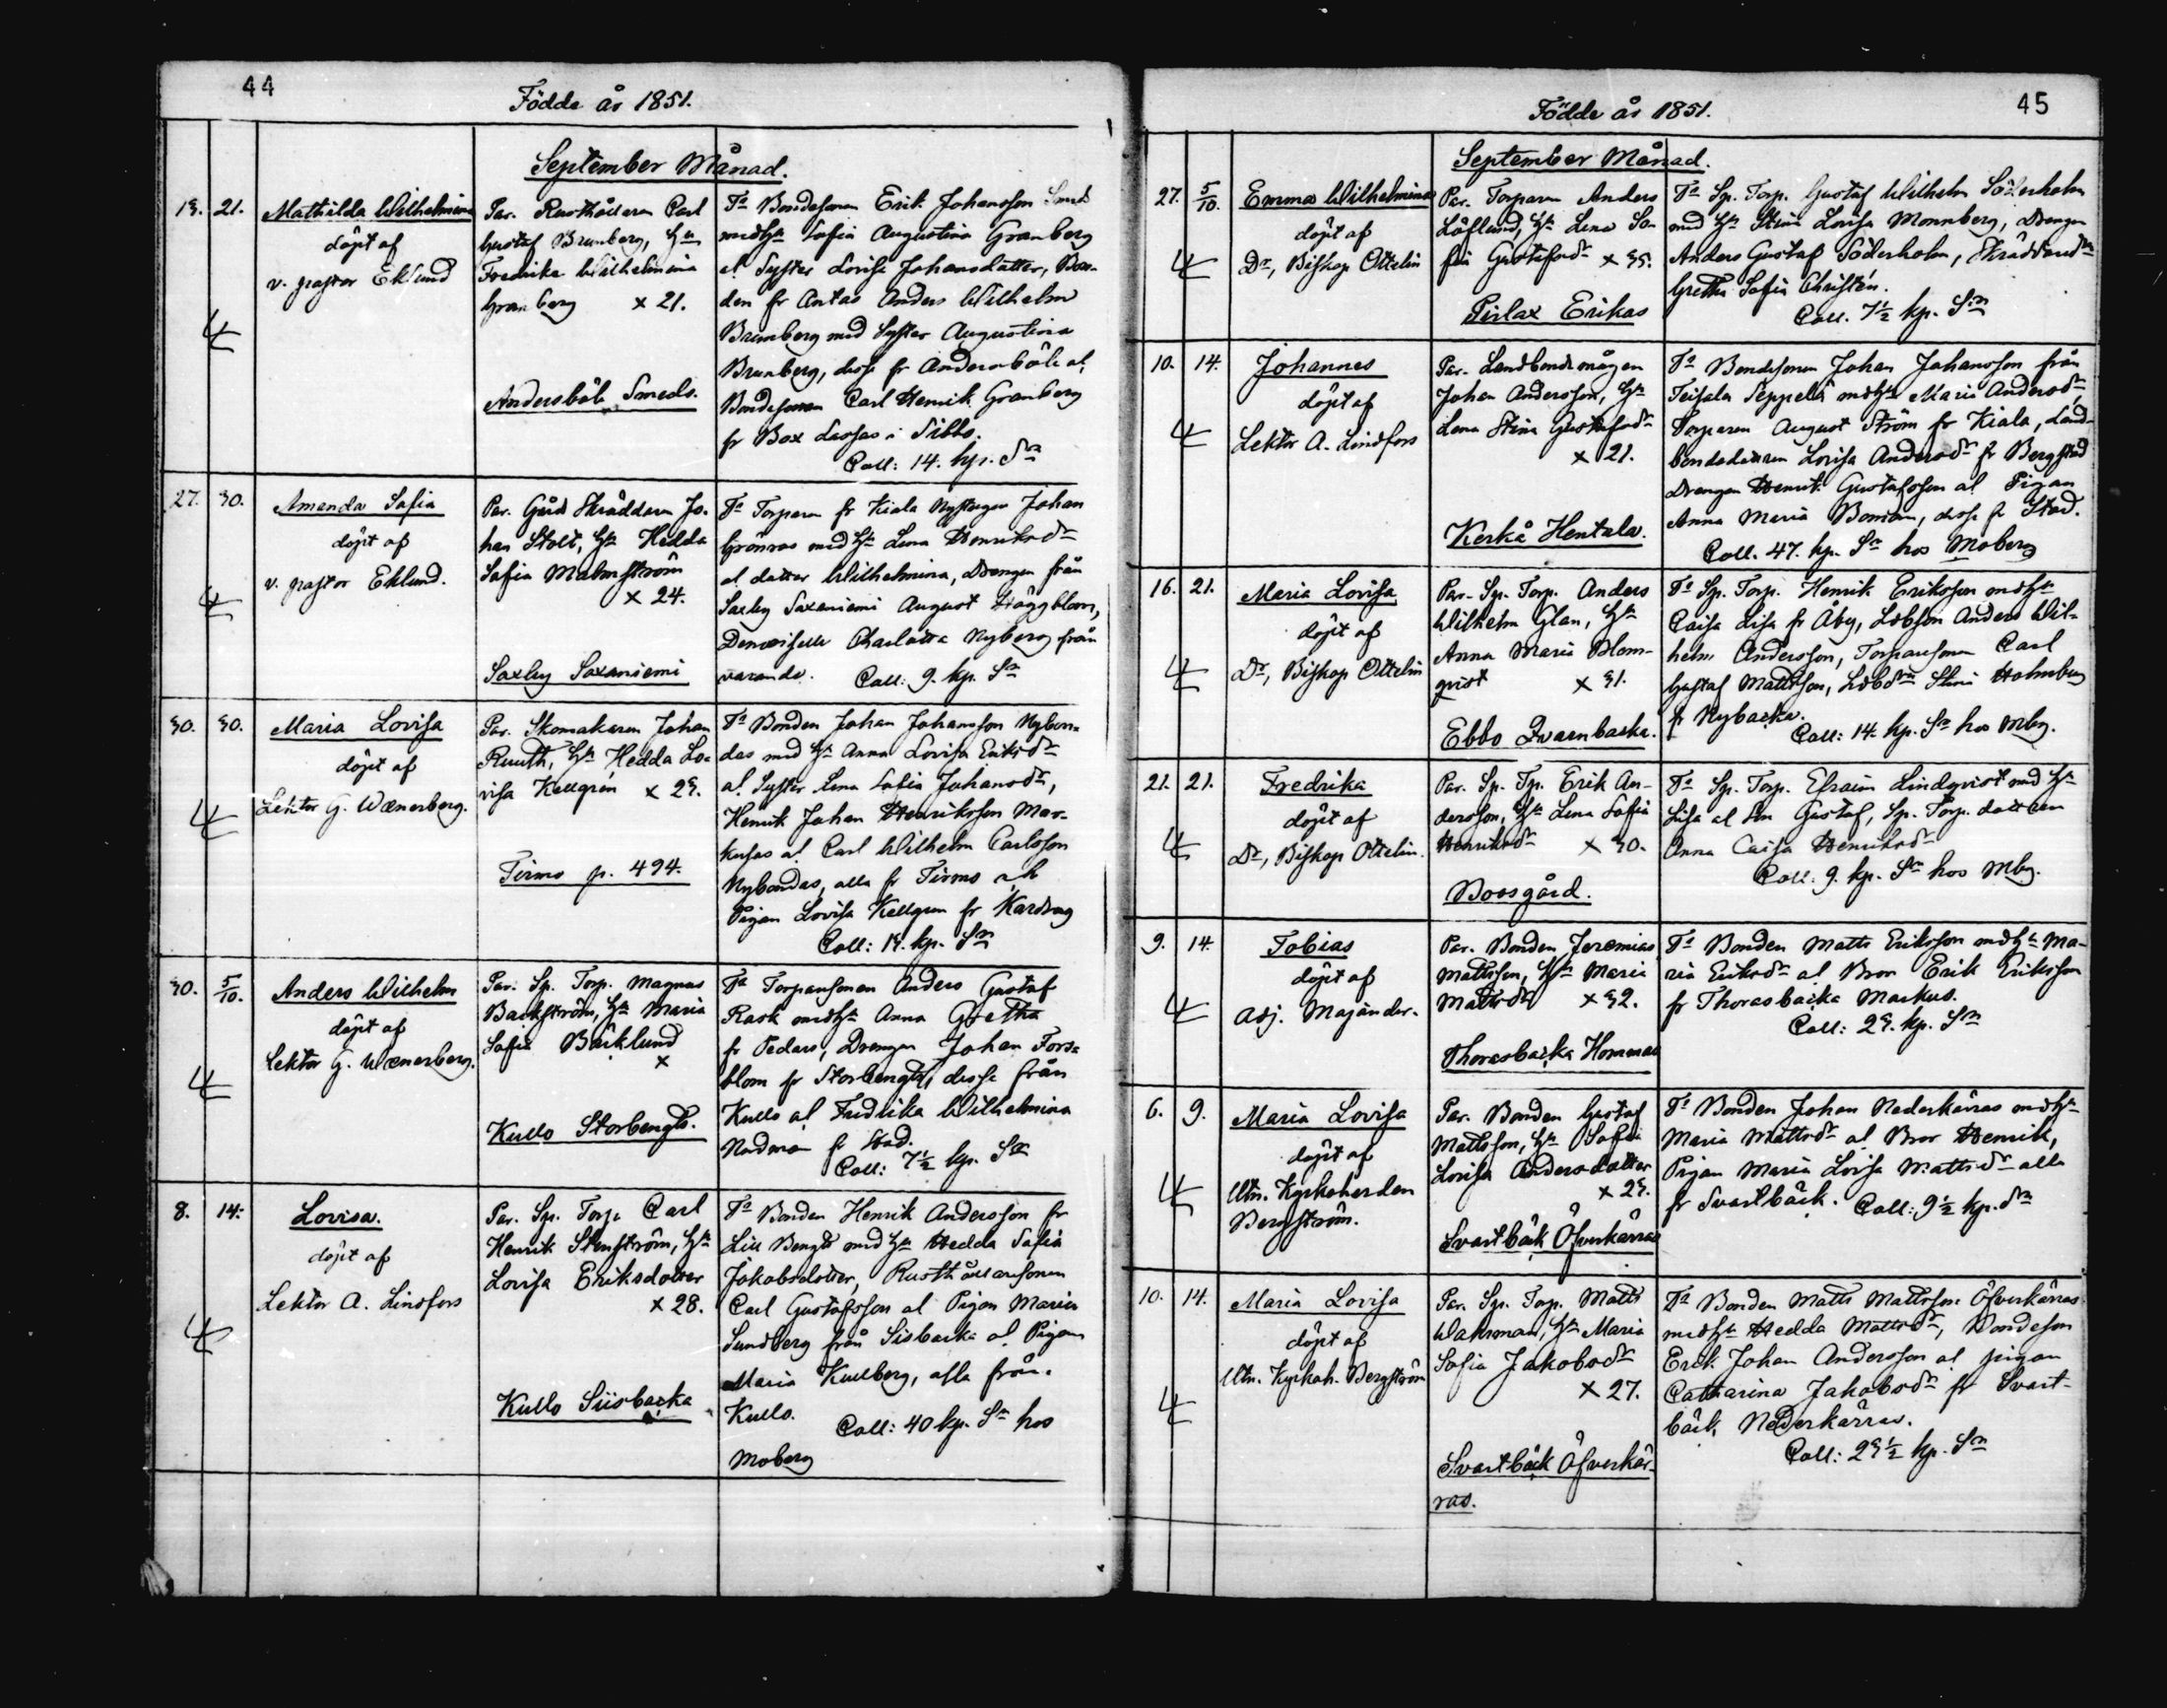 44
Födde år 1851.
September Månad.
13. 21. Mathilda Wilhelmina
döpt af
v. pastor Eklund
Par. Rusthållaren Carl
Gustaf Brunberg, Hu
Fredrika Wilhelmina
Granberg × 21.
Andersböle Smeds.
Fa Bondesonen Erik Johansson Smeds
medHu Sofia Augustina Granberg
al Syster Lovisa Johansdotter, Bon-
den fr Antas Anders Wilhelm
Brunberg med Syster Augustina
Brunberg, desse fr Andersböle al.
Bondesonen Carl Henrik Granberg
fr Box Lassas i Sibbo.
Coll: 14. kp. Sr
27. 30. Amanda Sofia
döpt af
v. pastor Eklund.
Par. Gård Skräddaren Jo-
han Stolt, Hu Hedda
Sofia Malmström
× 24.
Saxby Saxaniemi
Fa Torparen fr Kiala Nystugun Johan
Grönroos med Hu Lena Henriksdr
al dotter Wilhelmina, Drengen från
Saxby Saxaniemi August Häggblom,
Demoiselle Charlotta Nyberg från
varande. Coll: 9. kp. Sr
30. 30. Maria Lovisa
döpt af
Lektor G. Wænerberg.
Par. Skomakaren Johan
Ruuth, Hu Hedda Lo-
visa Kellgrén × 23.
Tirmo p. 494.
Fa Bonden Johan Johansson Nybon-
das med Hu Anna Lovisa Eriksdr
al Syster Lena Sofia Johansdr,
Henrik Johan Henriksson Mar-
kusas al Carl Wilhelm Carlsson
Nybondas, alla fr Tirmo och
Pigan Lovisa Kellgren fr Kardrag
Coll: 13. kp. Sr
30. 5/10. Anders Wilhelm
döpt af
Lektor G. Wænerberg.
Par. Sp. Torp. Magnus
Backström, Hu Maria
Sofia Bäcklund
×
Kullo Storbengts.
Fa Torparsonen Anders Gustaf
Rask medHu Anna Gretha
fr Pedars, Drengen Johan Fors-
blom fr Storbengts, desse från
Kullo al Fredrika Wilhelmina
Nodman fr Stad.
Coll: 7½ kp. Sr
8. 14. Lovisa.
döpt af
Lektor A. Lindfors
Par. Sp. Torp. Carl
Henrik Stenström, Hu
Lovisa Eriksdotter
× 28.
Kullo Siisbacka
Fa Bonden Henrik Andersson fr
Lill Bengts med Hu Hedda Sofia
Jakobsdotter, Rusthållaresonen
Carl Gustafsson al Pigan Maria
Sundberg från Sisbacka al Pigan
Maria Kullberg, alla från
Kullo. Coll: 40 kp. Sr hos
Moberg
45
Födde år 1851.
September Månad.
27. 5/10. Emma Wilhelmina
döpt af
Dr, Biskop Ottelin
Par. Torparen Anders
Löflund, Hu Lena So-
fia Gustafsdr × 35.
Pirlax Erikas
Fa Sp. Torp. Gustaf Wilhelm Söderholm
med Hu Stina Lovisa Monnberg, Drengen
Anders Gustaf Söderholm, Skräddaredr
Gretha Sofia Christén.
Coll. 7½ kp. Sr
10. 14. Johannes
döpt af
Lektor A. Lindfors
Par. Landbondemågen
Johan Andersson, Hu
Lena Stina Gustafsdr
× 21.
Kerkå Hentala.
Fa Bondesonen Johan Johansson från
Teisala Seppelä medHu Maria Andersdr,
Torparen August Ström fr Kiala, Land-
bondedottren Lovisa Andersdr fr Bergstad
Drengen Henrik Gustafsson al Pigan
Anna Maria Boman, desse fr Stad.
Coll. 47. kp. Sr hos Moberg
16. 21. Maria Lovisa
döpt af
Dr, Biskop Ottelin
Par. Sp. Torp. Anders
Wilhelm Glan, Hu
Anna Maria Blom-
qvist × 31.
Ebbo Qvarnbacka.
Fa Sp. Torp. Henrik Eriksson medHu
Caisa Lisa fr Åby, Ldbson Anders Wil-
helm Andersson, Torparsonen Carl
Gustaf Mattsson, Ldbdrn Stina Holmberg
fr Nybacka.
Coll: 14. kp. Sr hos Mbg.
21. 21. Fredrika
döpt af
Dr, Biskop Ottelin.
Par. Sp. Tp. Erik An-
dersson, Hu Lena Sofia
Henriksdr × 30.
Boosgård.
Fa Sp. Torp. Efraim Lindqvist med Hu
Lisa al Son Gustaf, Sp. Torp. dottren
Anna Caisa Henriksdr
Coll. 9. kp. Sr hos Mbg.
9. 14. Tobias
döpt af
Adj. Majander.
Par. Bonden Jeremias
Mattsson, Hu Maria
Mattsdr × 32.
Thorasbacka Hommas
Fa Bonden Matts Eriksson medHu Ma-
ria Eriksdr al Bror Erik Eriksson
fr Thorasbacka Markus.
Coll: 23. kp. Sr
6. 9. Maria Lovisa
döpt af
Utn. Kyrkoherden
Bergström.
Par. Bonden Gustaf
Mattsson, Hu Sofia
Lovisa Andersdotter
× 23.
Svartbäck Öfverkärras
Fa Bonden Johan Nederkärras medHu
Maria Mattsdr al Bror Henrik,
Pigan Maria Lovisa Mattsdr alla
fr Svartbäck. Coll: 9½ kp. Sr
10. 14. Maria Lovisa
döpt af
Utn. Kyrkoh. Bergström
Par. Sp. Torp. Matts
Wahrman, Hu Maria
Sofia Jakobsdr
× 27.
Svartbäck Öfverkär-
ras.
Fa Bonden Matts Mattsson Öfverkärras
medHu Hedda Mattsdr, Bondeson
Erik Johan Andersson al pigan
Catharina Jakobsdr fr Svart-
bäck Nederkärras.
Coll: 23½ kp. Sr